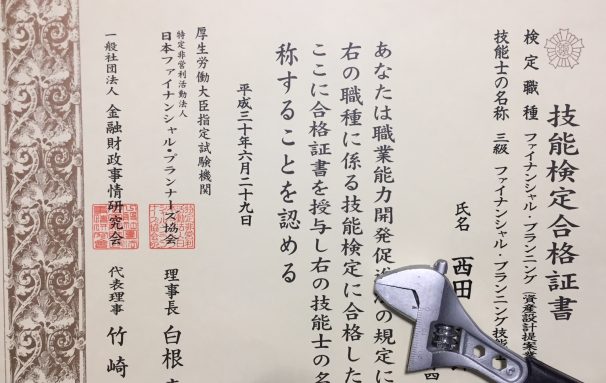 技能検定合格証書
検定職種 ファイナンシャル・プランニング（資産設計提案業
技能士の名称 三級 ファイナンシャル・プランニング技能
氏名 西田
四
あなたは職業能力開発促進法の規定に
右の職種に係る技能検定に合格した
ここに合格証書を授与し右の技能士の名
称することを認める
平成三十年六月二十九日
厚生労働大臣指定試験機関
特定非営利活動法人
日本ファイナンシャル・プランナーズ協会
理事長 白根
一般社団法人 金融財政事情研究会
代表理事 竹崎